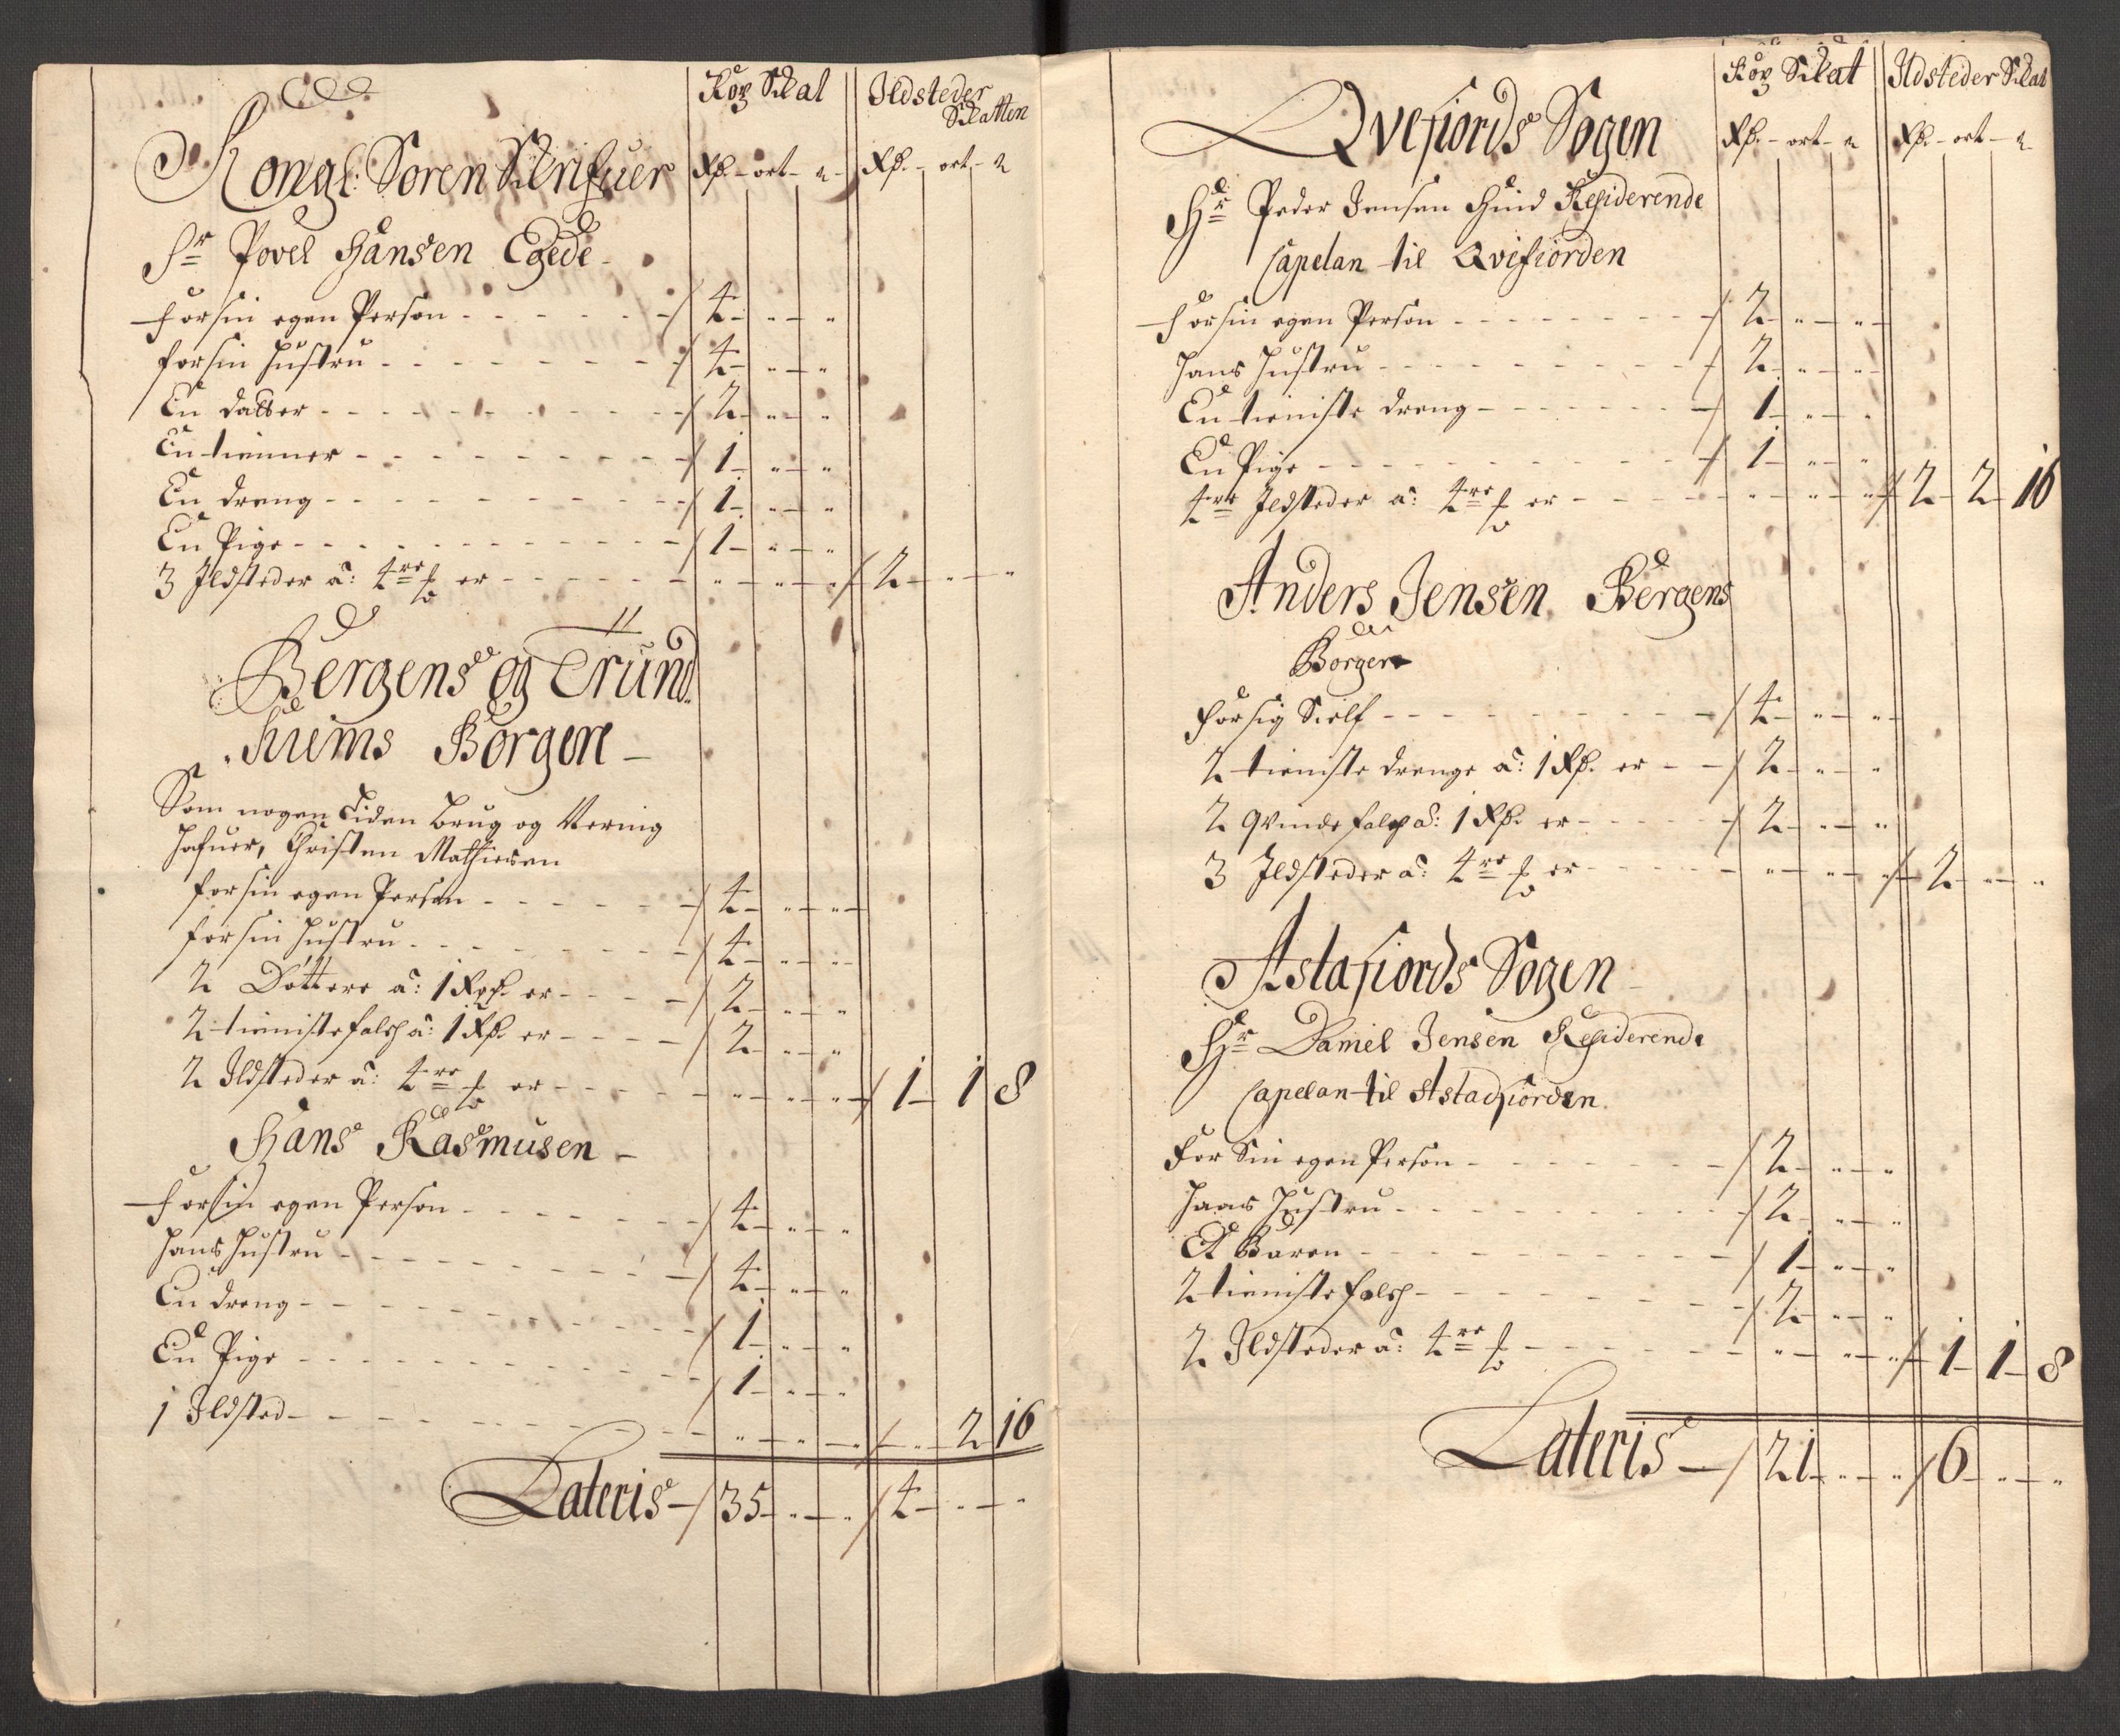 Kop Skat Ildsteder Skatten
Kongl: Soren Skrifuer Rd. - ort - s Rd. - ort - s
Sr Povel Hansen Egede
for sin egen Person - - - 4 - " - "
for sin Hustru - - - 4 - " - "
En datter - - - 2 - " - "
En tienner - - - 1 - " - "
En dreng - - - 1 - " - "
En Pige - - - 1 - " - "
3 Ildsteder a: 4re s er - - - " - " - " 2 - " - "
Bergens og Trund
hiems Borgere
Som nogen Tiden brug og Nering
hafuer, Christen Mathiesen
for sin egen Person - - - 4 - " - "
for sin Hustru - - - 4 - " - "
2 Døttere a: 1 Rd. er - - - 2 - " - "
2 tienistefolch a: 1 Rd. er - - - 2 - " - "
2 Ildsteder a: 4re s er - - - " - " - " 1 - 1 8
Hans Rasmusen
for sin egen Person - - - 4 - " - "
hans Hustru - - - 4 - " - "
En dreng - - - 1 - " - "
En Pige - - - 1 - " - "
1 Ildsted - - - " - " - " " - 2 16
Lateris - 35 - " - " 4 - " - "
Kop Skat Ildsteder Skat
Qvefiords Sogen Rd. - ort - s Rd. - ort - s
Hr Peder Jensen Hind Residerende
Capelan til Qvefiorden
for sin egen Person - - - 2 - " - "
hans Hustru - - - 2 - " - "
En tieniste dreng - - - 1 - " - "
En Pige - - - 1 - " - "
4re Ildsteder a: 4re s er - - - " - " - " 2 - 2 - 16
Anders Jensen Bergens
Borger
for sig Sielf - - - 4 - " - "
2 tieniste drenge a: 1 Rd. er - - 2 - " - "
2 qvindefolch a: 1 Rd. er - - - 2 - " - "
3 Ildsteder a: 4re s er - - - " - " - " 2 - " - "
Astafiords Sogen
Hr Daniel Jensen Residerende
Capelan til Astadfiorden
For Sin egen Person - - - 2 - " - "
hans Hustru - - - 2 - " - "
Et Baren - - - 1 - " - "
2 tieniste folch - - - 2 - " - "
2 Ildsteder a: 4re s - - - " - " - " 1 - 1 - 8
Lateris - 21 - " - " 6 - " - "